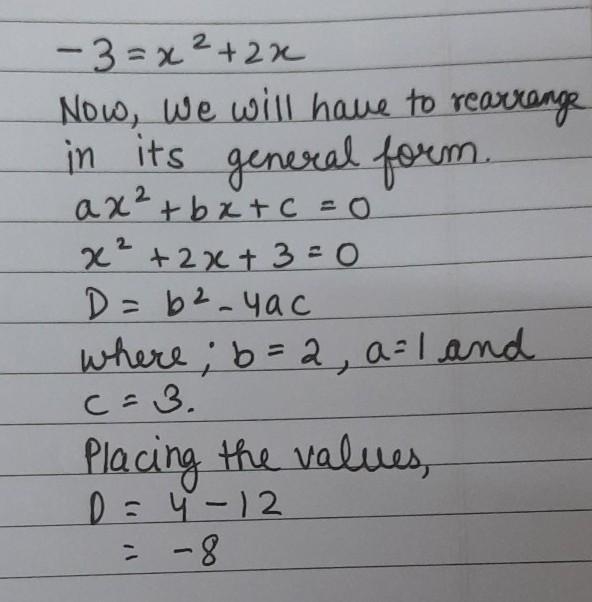 -3 = x² + 2x
Now, we will have to rearrange
in its general form.
ax² + bx + c = 0
x² + 2x + 3 = 0
D = b² - 4ac
where; b = 2, a = 1 and
c = 3.
Placing the values,
D = 4 - 12
= -8